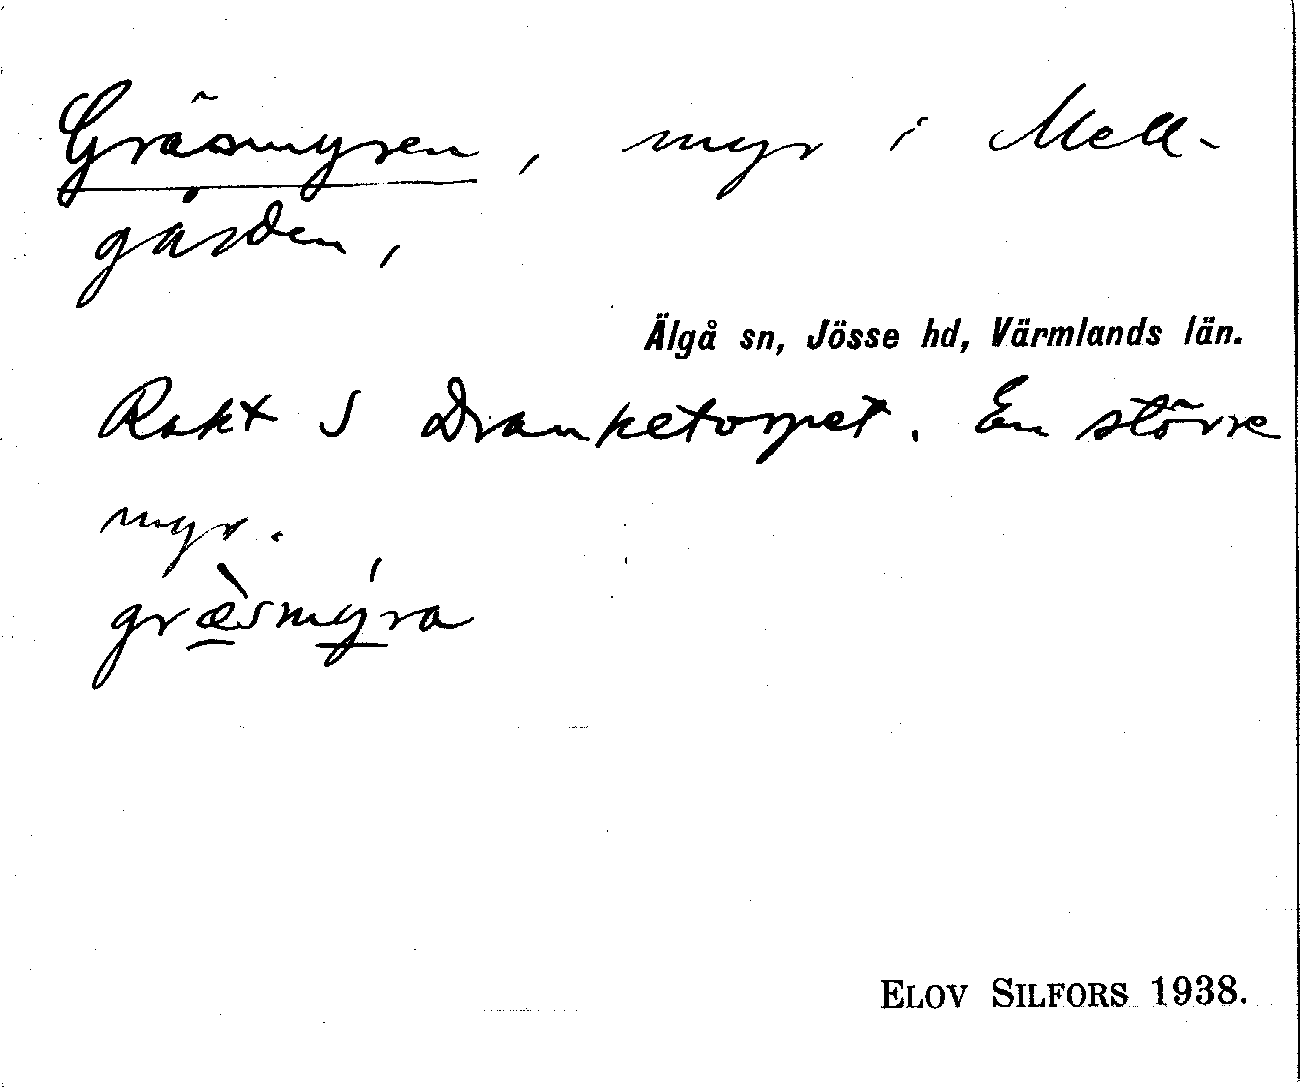 Gräsmyren, myr i Mell-
gården,
Älgå sn, Jösse hd, Värmlands län.
Rakt S Dranketorpet. En större
myr.
græ̀smýra
ELOV SILFORS 1938.